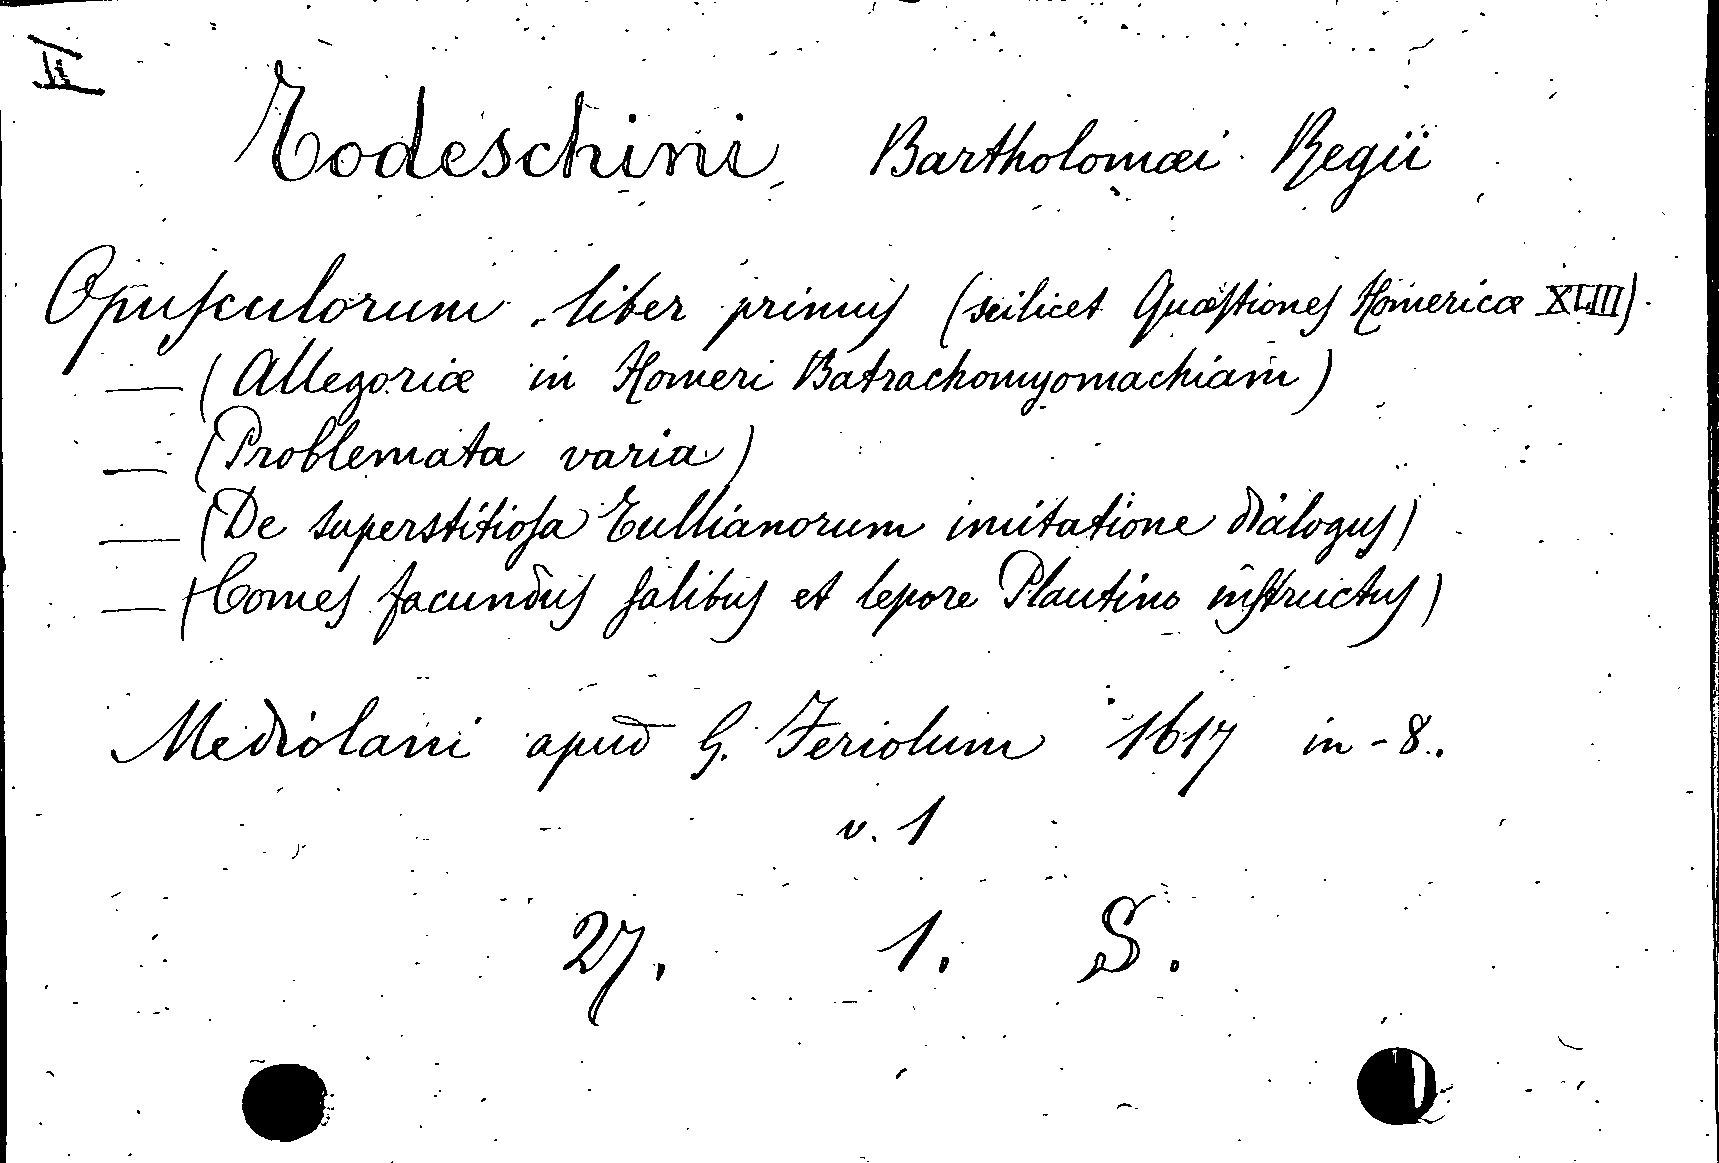 II
Todeschini, Bartholomæi Regii
Opusculorum liber primus (scilicet Quæstiones Homericæ XLIII).
— (Allegoriæ in Homeri Batrachomyomachiam)
— (Problemata varia)
— (De superstitiosa Tullianorum imitatione dialogus)
— (Comes facundus salibus et lepore Plautino instructus)
Mediolani apud G. Feriolum 1617 in-8..
v. 1
27. 1. S.